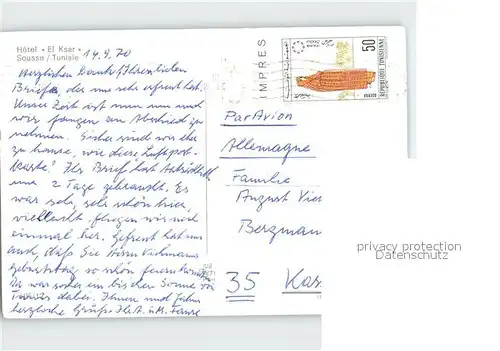 Hôtel • El Ksar •
Sousse / Tunisie
14.9.70
Herzlichen Dank f. Ihren lieben
Brief, der uns sehr erfreut hat.
Unsere Zeit ist nun um und
wir fangen an Abschied zu
nehmen. Sicher sind wir eher
zu hause, wie diese Luftpost-
karte? Ihr Brief hat
nur 2 Tage gebraucht. Es
war sehr, sehr schön hier,
vielleicht fliegen wir noch
einmal her. Gefreut hat uns
auch, daß Sie
geburtstag so schön feiern konnten
Da war sicher ein bischen Sonne von
Tunis dabei. Ihnen und
herzliche Grüße Ihr A. u. M.
IMPRES
50
REPUBLIQUE TUNISIENNE
Par Avion
Allemagne
Familie
August
Bergman
35 Kas
privacy protection
Datenschutz